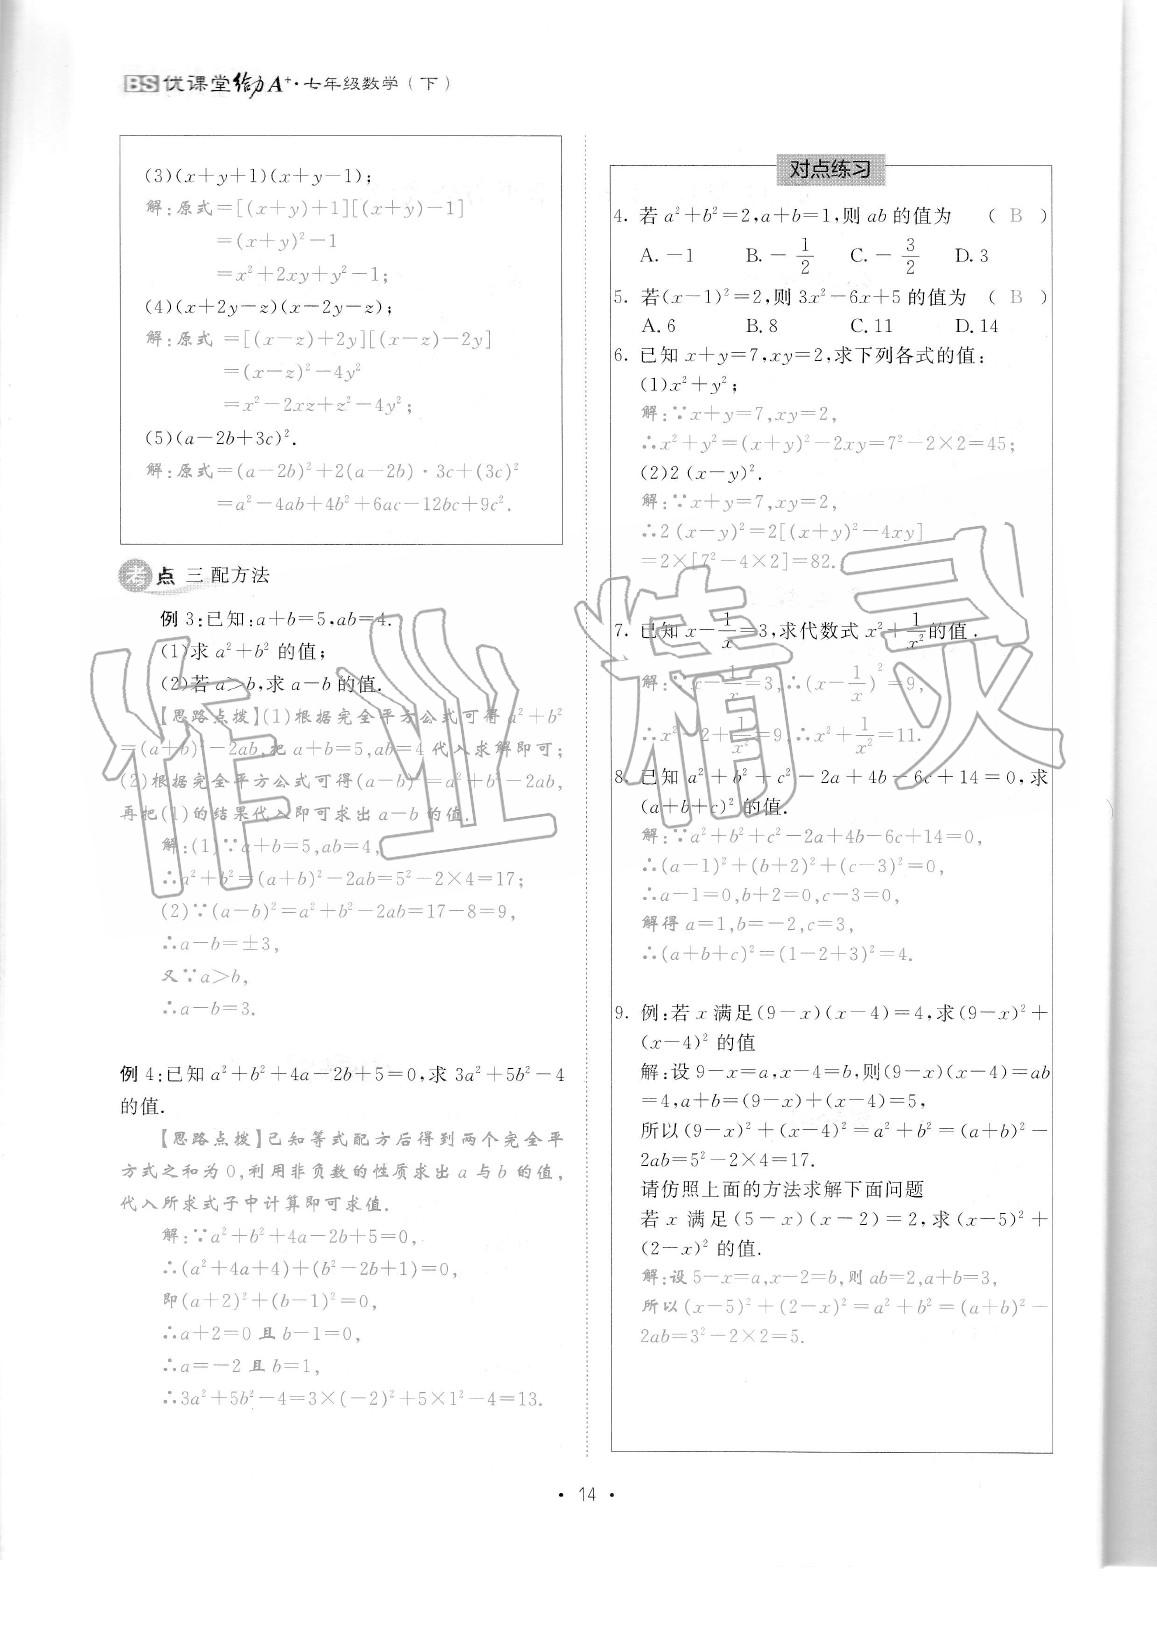 BS优课堂给力A⁺·七年级数学(下)
(3)(x+y+1)(x+y-1);
解:原式=[(x+y)+1][(x+y)-1]
=(x+y)²-1
=x²+2xy+y²-1;
(4)(x+2y-z)(x-2y-z);
解:原式=[(x-z)+2y][(x-z)-2y]
=(x-z)²-4y²
=x²-2xz+z²-4y²;
(5)(a-2b+3c)².
解:原式=(a-2b)²+2(a-2b)·3c+(3c)²
=a²-4ab+4b²+6ac-12bc+9c².
考点三 配方法
例3:已知:a+b=5,ab=4.
(1)求a²+b²的值;
(2)若a>b,求a-b的值.
【思路点拨】(1)根据完全平方公式可得a²+b²
=(a+b)²-2ab,把a+b=5,ab=4代入求解即可;
(2)根据完全平方公式可得(a-b)²=a²+b²-2ab,
再把(1)的结果代入即可求出a-b的值.
解:(1)∵a+b=5,ab=4,
∴a²+b²=(a+b)²-2ab=5²-2×4=17;
(2)∵(a-b)²=a²+b²-2ab=17-8=9,
∴a-b=±3,
又∵a>b,
∴a-b=3.
例4:已知a²+b²+4a-2b+5=0,求3a²+5b²-4
的值.
【思路点拨】已知等式配方后得到两个完全平
方式之和为0,利用非负数的性质求出a与b的值,
代入所求式子中计算即可求值.
解:∵a²+b²+4a-2b+5=0,
∴(a²+4a+4)+(b²-2b+1)=0,
即(a+2)²+(b-1)²=0,
∴a+2=0且b-1=0,
∴a=-2且b=1,
∴3a²+5b²-4=3×(-2)²+5×1²-4=13.
对点练习
4. 若a²+b²=2,a+b=1,则ab的值为 ( B )
A. -1 B. -1/2 C. -3/2 D. 3
5. 若(x-1)²=2,则3x²-6x+5的值为 ( B )
A. 6 B. 8 C. 11 D. 14
6. 已知x+y=7,xy=2,求下列各式的值:
(1)x²+y²;
解:∵x+y=7,xy=2,
∴x²+y²=(x+y)²-2xy=7²-2×2=45;
(2)2(x-y)².
解:∵x+y=7,xy=2,
∴2(x-y)²=2[(x+y)²-4xy]
=2×[7²-4×2]=82.
7. 已知x-1/x=3,求代数式x²+1/x²的值.
解:∵x-1/x=3,∴(x-1/x)²=9,
∴x²-2+1/x²=9,∴x²+1/x²=11.
8. 已知a²+b²+c²-2a+4b-6c+14=0,求
(a+b+c)²的值.
解:∵a²+b²+c²-2a+4b-6c+14=0,
∴(a-1)²+(b+2)²+(c-3)²=0,
∴a-1=0,b+2=0,c-3=0,
解得a=1,b=-2,c=3,
∴(a+b+c)²=(1-2+3)²=4.
9. 例:若x满足(9-x)(x-4)=4,求(9-x)²+
(x-4)²的值
解:设9-x=a,x-4=b,则(9-x)(x-4)=ab
=4,a+b=(9-x)+(x-4)=5,
所以(9-x)²+(x-4)²=a²+b²=(a+b)²-
2ab=5²-2×4=17.
请仿照上面的方法求解下面问题
若x满足(5-x)(x-2)=2,求(x-5)²+
(2-x)²的值.
解:设5-x=a,x-2=b,则ab=2,a+b=3,
所以(x-5)²+(2-x)²=a²+b²=(a+b)²-
2ab=3²-2×2=5.
作业精灵
· 14 ·